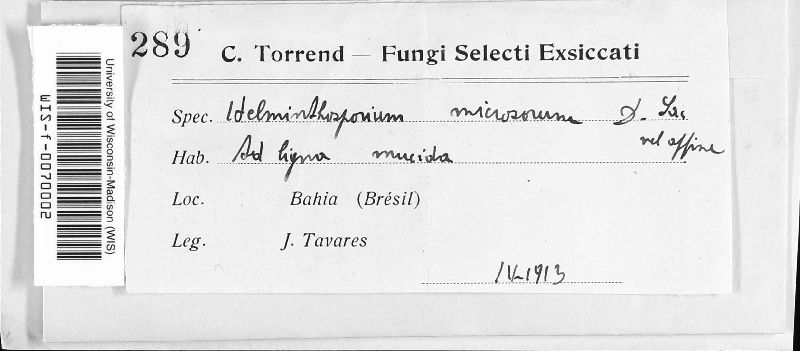 289 C. Torrend — Fungi Selecti Exsiccati
Spec. Helminthosporium microsorum D. Sac
vel affine
Hab. Ad ligna mucida
Loc. Bahia (Brésil)
Leg. J. Tavares
IV-1913
University of Wisconsin-Madison (WIS)
WIS-f-0070002